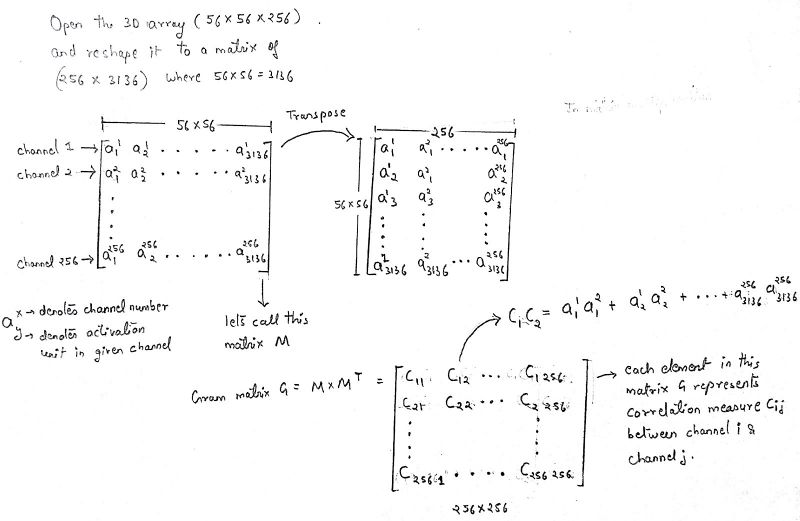 Open the 3D array (56×56×256).
and reshape it to a matrix of
(256 × 3136) where 56×56 = 3136
56×56
channel 1 → a¹₁ a¹₂ · · · · · a¹₃₁₃₆
channel 2 → a²₁ a²₂ · · · · · a²₃₁₃₆
channel 256 → a²⁵⁶₁ a²⁵⁶₂ · · · · · · a²⁵⁶₃₁₃₆
Transpose
256
56×56
a¹₁ a²₁ · · · · · a²⁵⁶₁
a¹₂ a²₁ a²⁵⁶₂
a¹₃ a²₃ a²⁵⁶₃
a¹₃₁₃₆ a²₃₁₃₆ · · · a²⁵⁶₃₁₃₆
a x → denotes channel number
y → denotes activation
unit in given channel
lets call this
matrix M
C₁C₂ = a¹₁a²₁ + a¹₂a²₂ + · · · + a²⁵⁶₃₁₃₆ a²⁵⁶₃₁₃₆
Gram matrix G = M × Mᵀ =
C₁₁ C₁₂ · · · C₁ ₂₅₆
C₂₁ C₂₂ · · · C₂ ₂₅₆
C₂₅₆ ₁ · · · · C₂₅₆ ₂₅₆
256×256
→ each element in this
matrix G represents
correlation measure Cᵢⱼ
between channel i &
channel j.